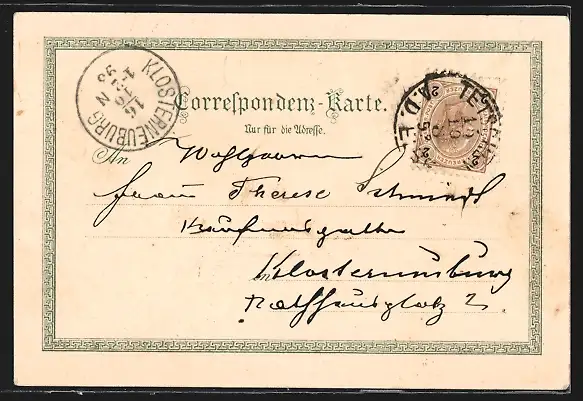 KLOSTERNEUBURG
16
98
N
Correspondenz-Karte.
Nur für die Adresse.
TETSCHEN A.D.E.
2
An Wohlgeboren
Frau Therese Schmidt
Kaufmannsgattin
Klosterneuburg
Rathhausplatz 2